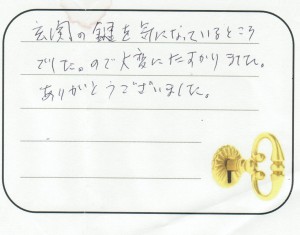 玄関の鍵を気になっているところ
でした。ので大変にたすかりました。
ありがとうございました。